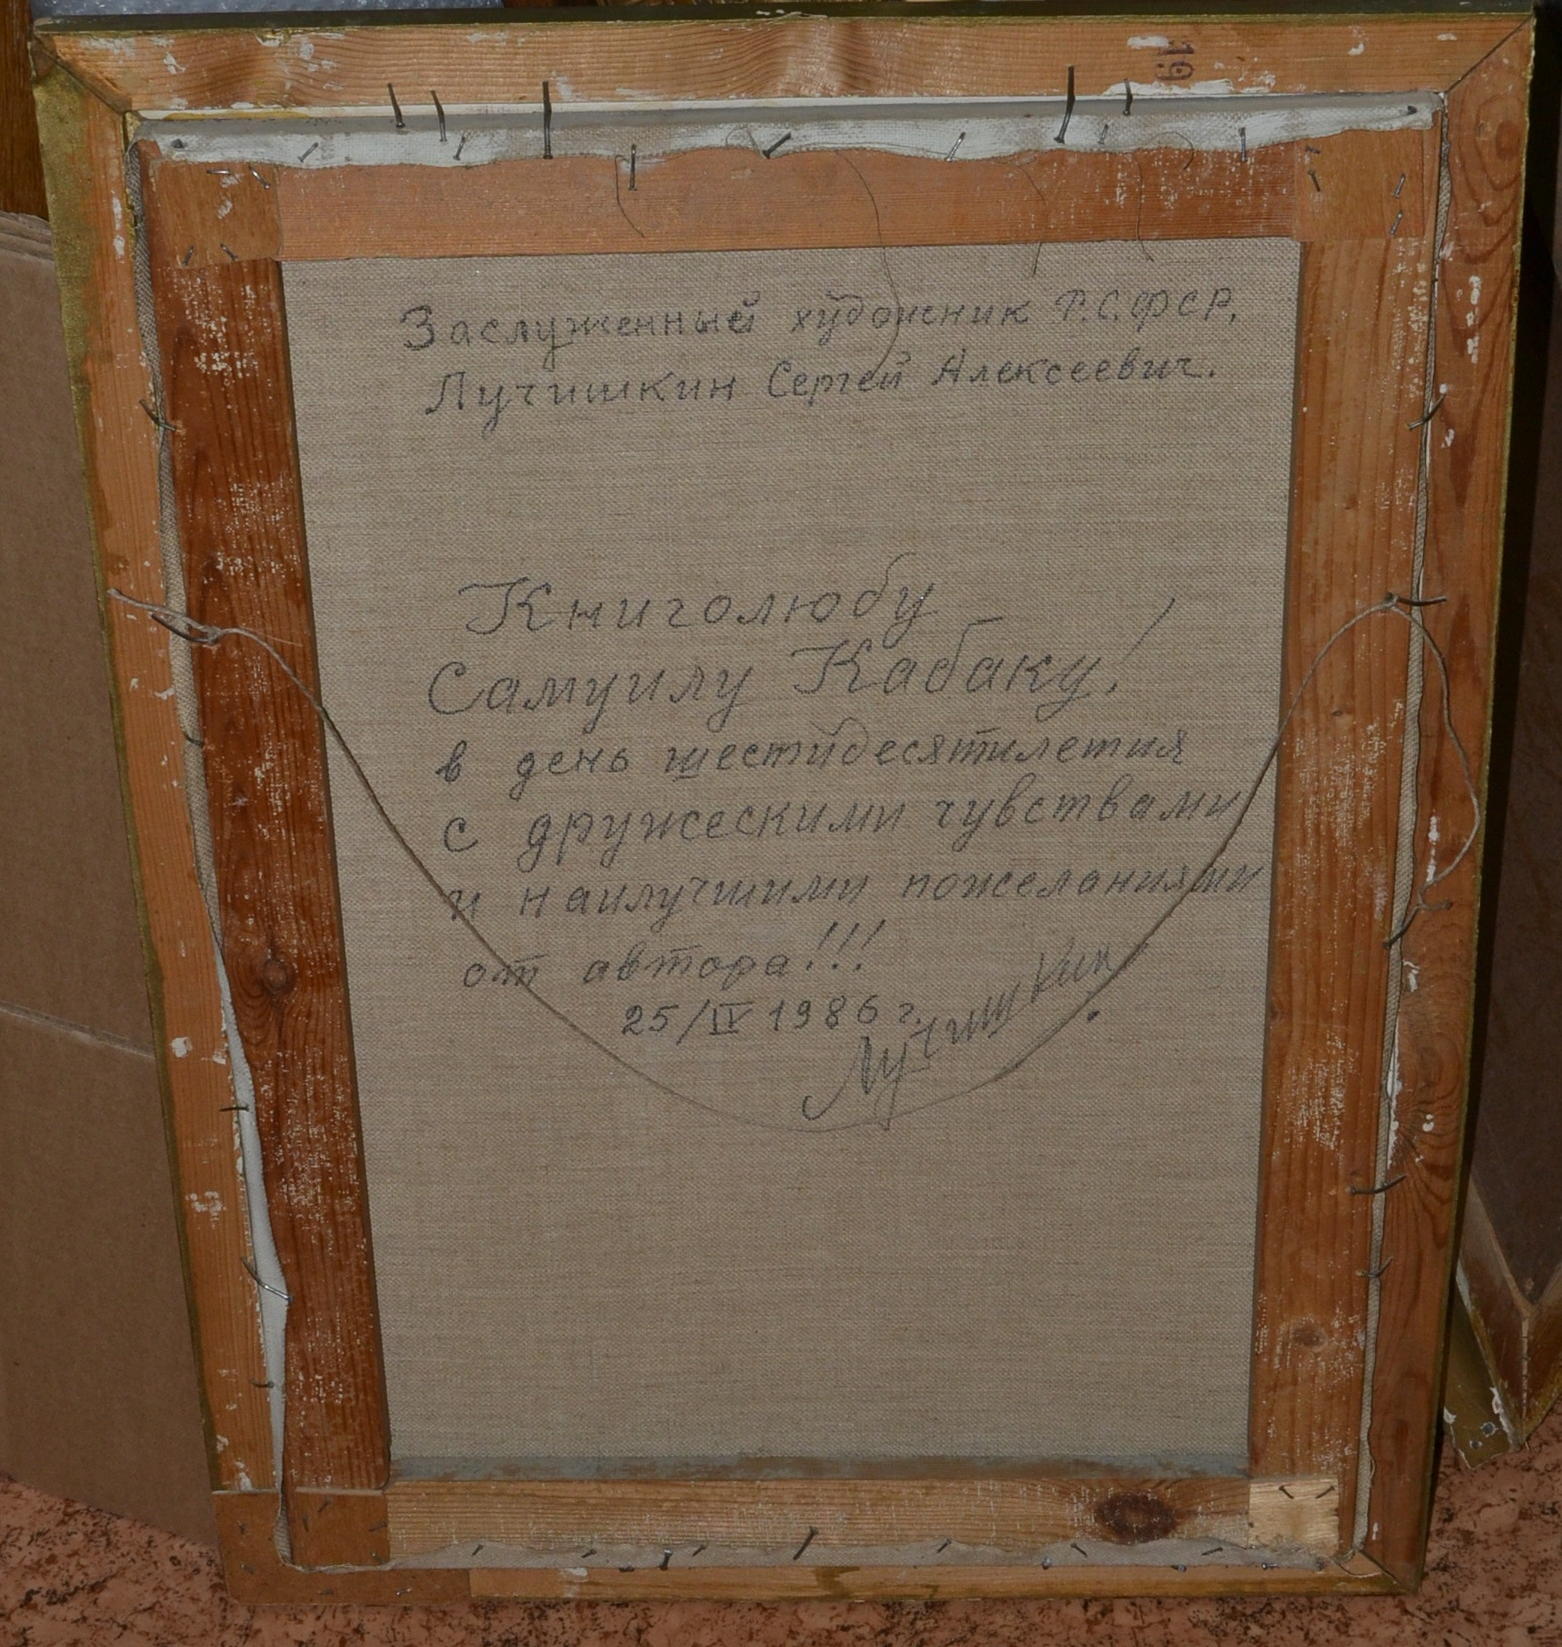 19
Заслуженный художник Р.С.ФСР,
Лучишкин Сергей Алексеевич.
Книголюбу
Самуилу Кабаку!
в день шестидесятилетия
с дружескими чувствами
и наилучшими пожеланиями
от автора!!!
25/IV 1986 г.
Лучишкин